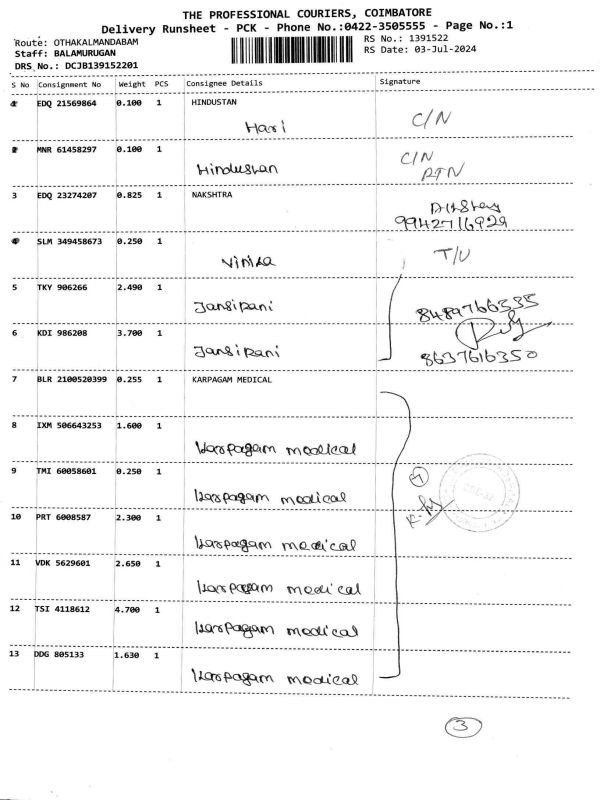 THE PROFESSIONAL COURIERS, COIMBATORE
Delivery Runsheet - PCK - Phone No.:0422-3505555 - Page No.:1
Route: OTHAKALMANDABAM RS No.: 1391522
Staff: BALAMURUGAN RS Date: 03-Jul-2024
DRS No.: DCJB139152201
S No Consignment No Weight PCS Consignee Details Signature
EDQ 21569864 0.100 1 HINDUSTAN
Hari C/N
MNR 61458297 0.100 1 C/N
Hindustan RTN
3 EDQ 23274207 0.825 1 NAKSHTRA
9942716929
SLM 349458673 0.250 1 T/U
5 TKY 906266 2.490 1
Jansirani 8489766535
6 KDI 986208 3.700 1
Jansirani 8637616350
7 BLR 2100520399 0.255 1 KARPAGAM MEDICAL
8 IXM 506643253 1.600 1
Karpagam medical
9 TMI 60058601 0.250 1 7
Karpagam medical
10 PRT 6008587 2.300 1
Karpagam medical
11 VDK 5629601 2.650 1
Karpagam medical
12 TSI 4118612 4.700 1
Karpagam medical
13 DDG 805133 1.630 1
Karpagam medical
3